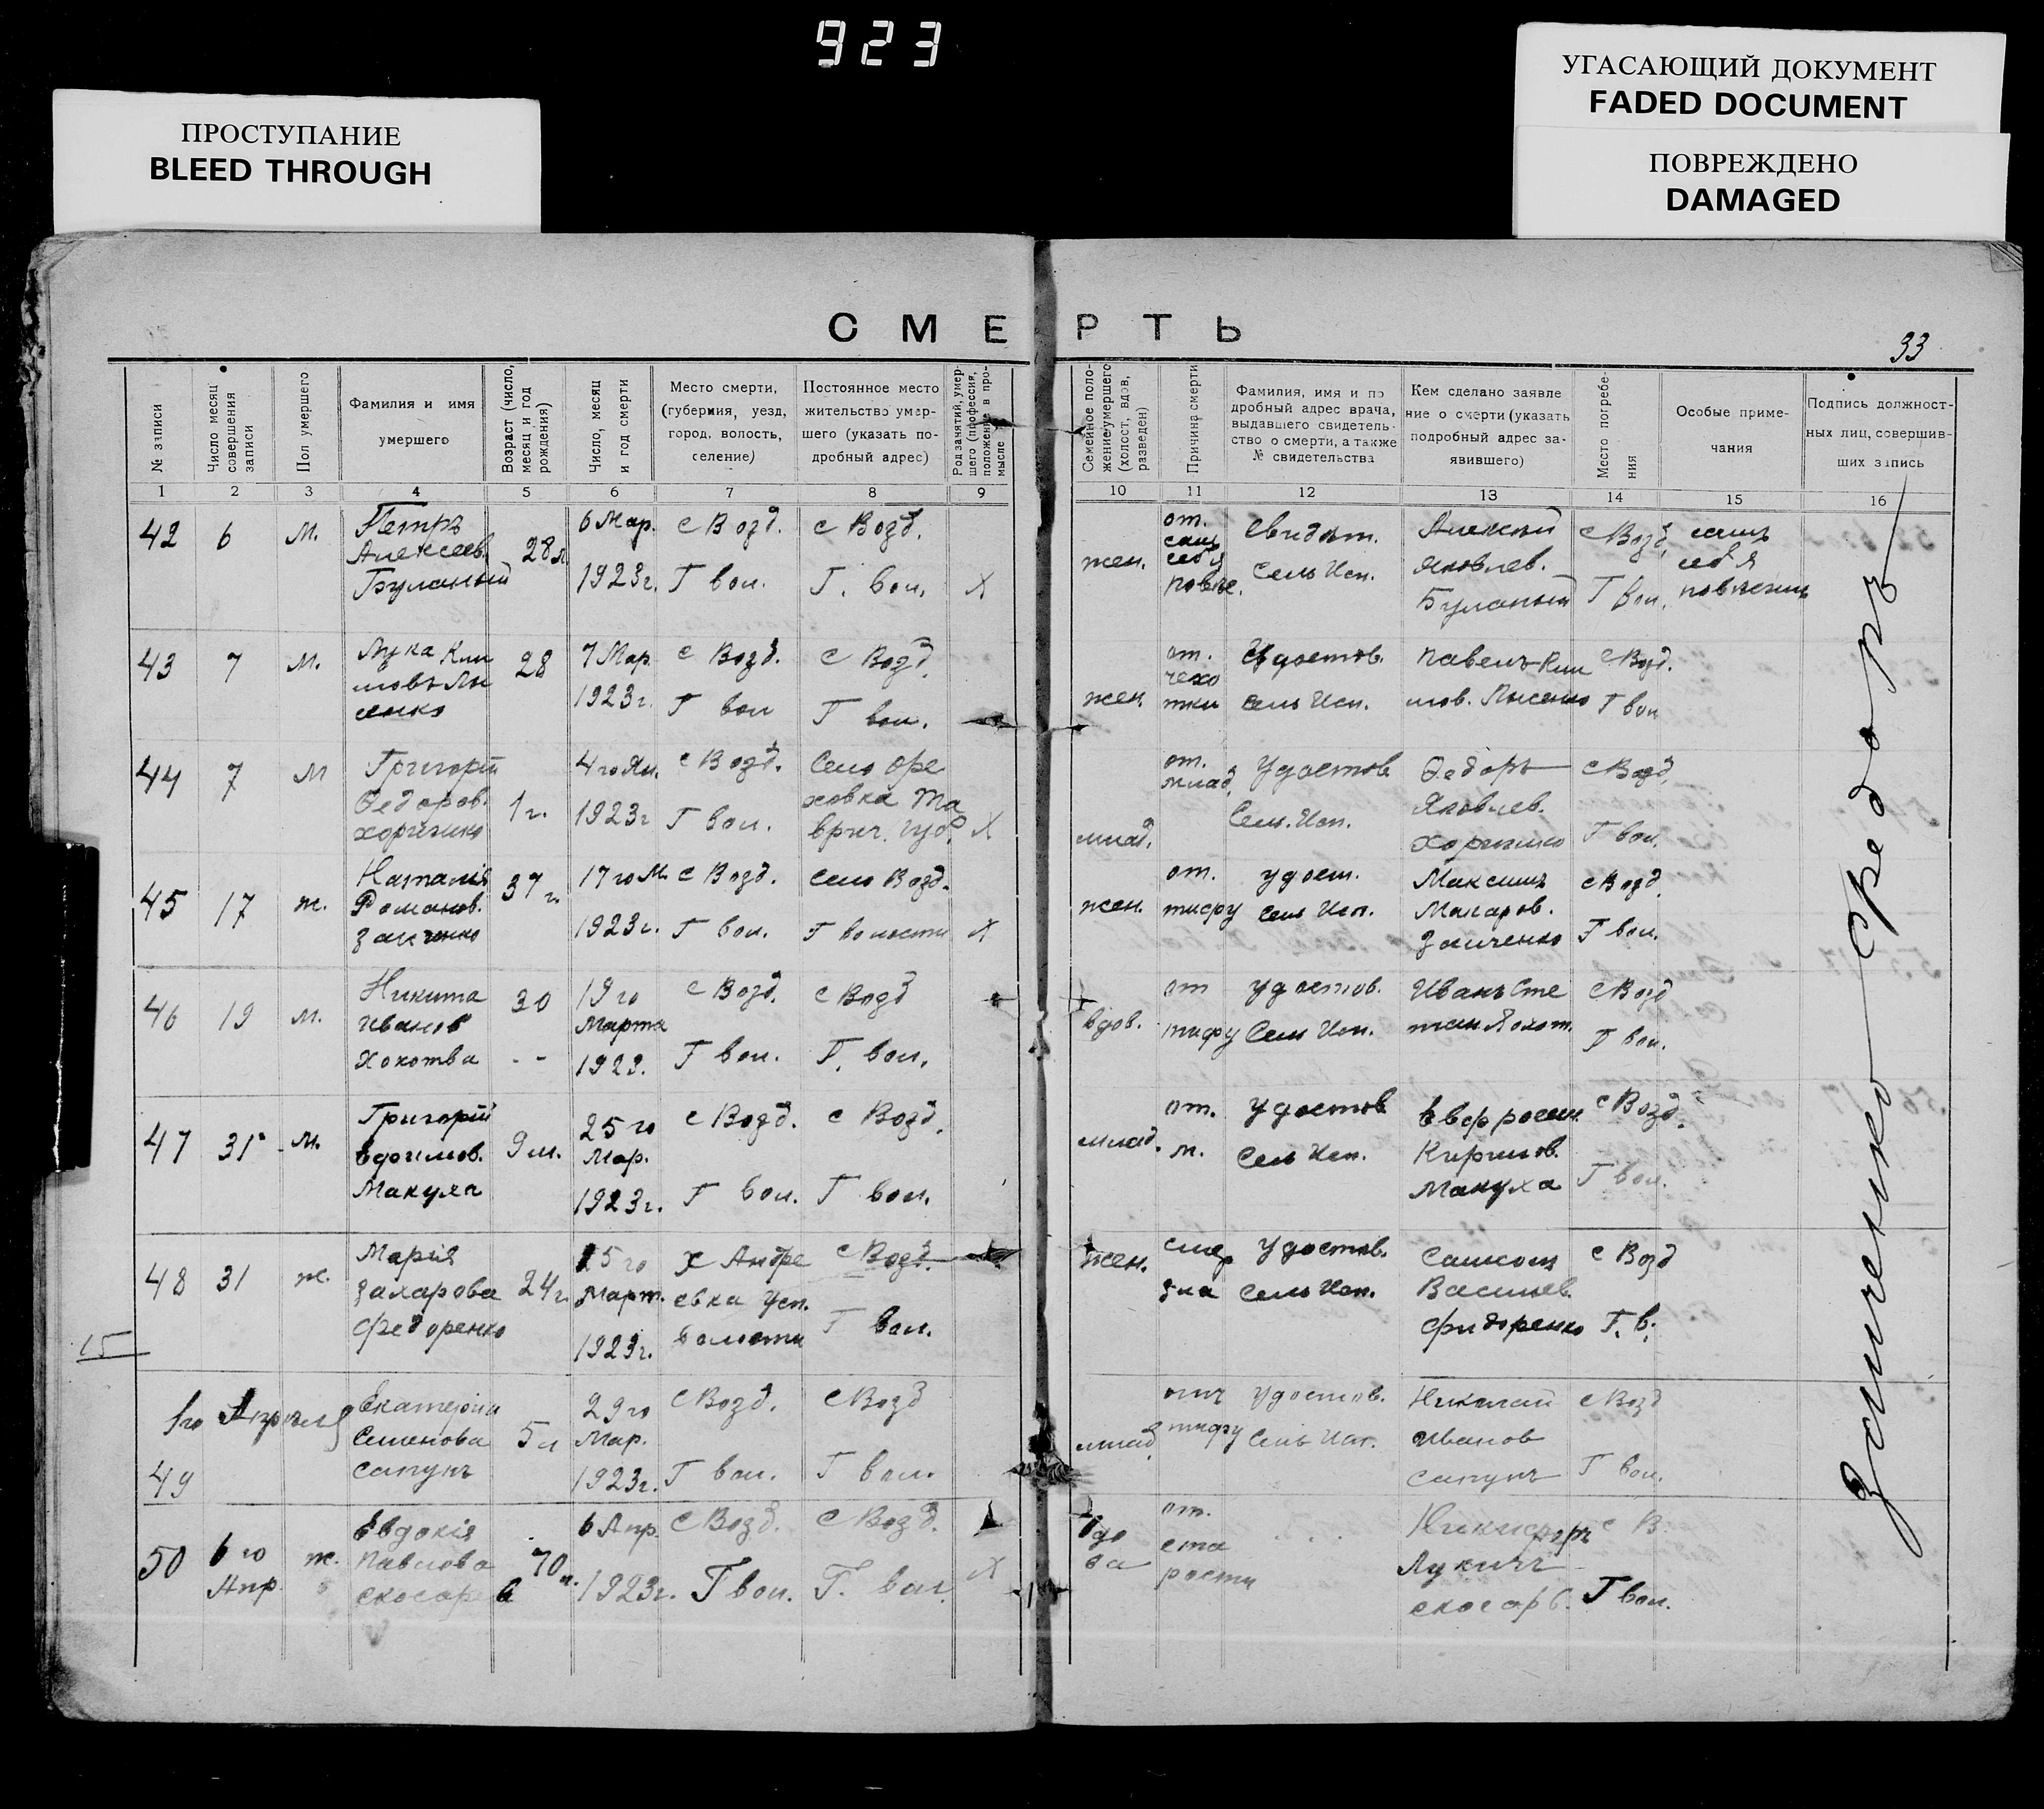 923
УГАСАЮЩИЙ ДОКУМЕНТ
FADED DOCUMENT
ПРОСТУПАНИЕ
BLEED THROUGH
ПОВРЕЖДЕНО
DAMAGED
СМЕРТЬ
33
№ записи
Число месяц совершения записи
Пол умершего
Фамилия и имя умершего
Возраст (число, месяц и год рождения)
Число, месяц и год смерти
Место смерти, (губерния, уезд, город, волость, селение)
Постоянное место жительство умершего (указать подробный адрес)
Род занятий, умершего (профессия, положение в промысле
Семейное положение/умершего (холост, вдов, разведен)
Причина смерти
Фамилия, имя и по дробный адрес врача, выдавшего свидетельство о смерти, а также № свидетельства
Кем сделано заявле ние о смерти (указать подробный адрес заявившего)
Место погребения
Особые примечания
Подпись должностных лиц, совершивших запись
1 2 3 4 5 6 7 8 9 10 11 12 13 14 15 16
42 6 м. Петръ Алексеев. Буланый 28 л 6 Мар. 1923г. с Возд. Г вол. с Возд. Г. вол. X
жен. от. сам себя Свидет. Сель Исп. Алексей Яковлев. Буланый с Возд. Г вол. самъ себя
43 7 м. Лука 28 7 Мар. 1923г. с Возд. Г вол с Возд. Г вол.
жен. от. чехо тки Удостов. Сель Исп. Павелъ Кли мов. Лысенко с Возд. Г вол
44 7 м Григорій Ѳедоров. 1 г. 4го Ян. 1923г с Возд. Г вол. Село Оре ховка Та врич. губ. X
млад. от. млад. Удостов Сель. Исп. Ѳедоръ Яковлев. с Возд. Г вол.
45 17 ж. Наталія Романов. Заиченко 37 г. 17го М. 1923г. с Возд. Г вол. село Возд. Г волости X
жен. от. тифу удост. Сель Исп. Максимъ Макаров. Заиченко с Возд. Г вол.
46 19 м. Никита Иванов 30 -- 19го Марта 1923. с Возд. Г вол. с Возд Г. вол.
вдов. от тифу удостов. Сель Исп. Иванъ Сте с Возд Г вол.
47 31 м. Григорій Ефимов. Макуха 9 м. 25го Мар. 1923г. с Возд. Г вол. с Возд. Г вол.
млад. от. м. удостов Сель Исп. Макуха с Возд. Г вол.
48 31 ж. Марія Захарова Федоренко 24 г. 15го Март. 1923г. х Андре евка Усп. волости с Возд. Г вол.
жен. Удостов. Сель Исп. Васильев. с Возд Г. в.
15
1го Апреля
49 Екатерина Семенова Сапунъ 5 л 29го Мар. 1923г. с Возд. Г вол. с Возд Г вол.
млад. отъ тифу Удостов. Сель Исп. Николай Иванов Сапунъ с Возд Г вол.
50 6го Апр. ж. Евдокія Павлова 70 л. 6 Апр. 1923г. с Возд. Г вол. с Возд. Г. вол. X
вдо ва от. ста рости Никифоръ Лукичъ с В. Г вол.
Заиченко